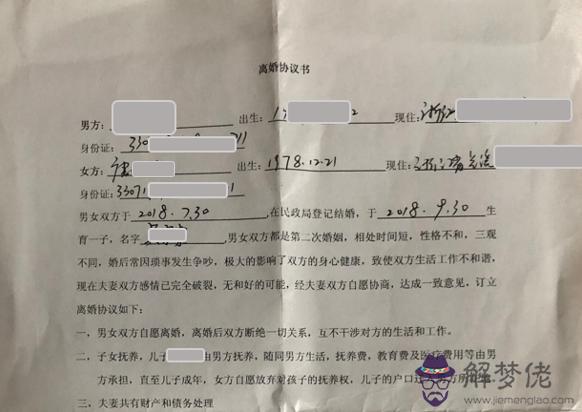 离婚协议书
男方: 出生: 2 现住: 浙江
身份证: 330 11
女方: 出生: 1978.12.21 现住: 浙江
身份证: 3307 1
男女双方于 2018.7.30 ,在民政局登记结婚，于 2018.9.30 生
育一子，名字 ,男女双方都是第二次婚姻，相处时间短，性格不和，三观
不同，婚后常因琐事发生争吵，极大的影响了双方的身心健康，致使双方生活工作不和谐，
现在夫妻双方感情已完全破裂，无和好的可能，经夫妻双方自愿协商，达成一致意见，订立
离婚协议如下：
一，男女双方自愿离婚，离婚后双方断绝一切关系，互不干涉对方的生活和工作。
二，子女抚养，儿子 由男方抚养，随同男方生活，抚养费，教育费及医疗费用等由男
方承担，直至儿子成年，女方自愿放弃对孩子的抚养权，儿子的户口
三，夫妻共有财产和债务处理
解梦佬
www.jiemenglao.com